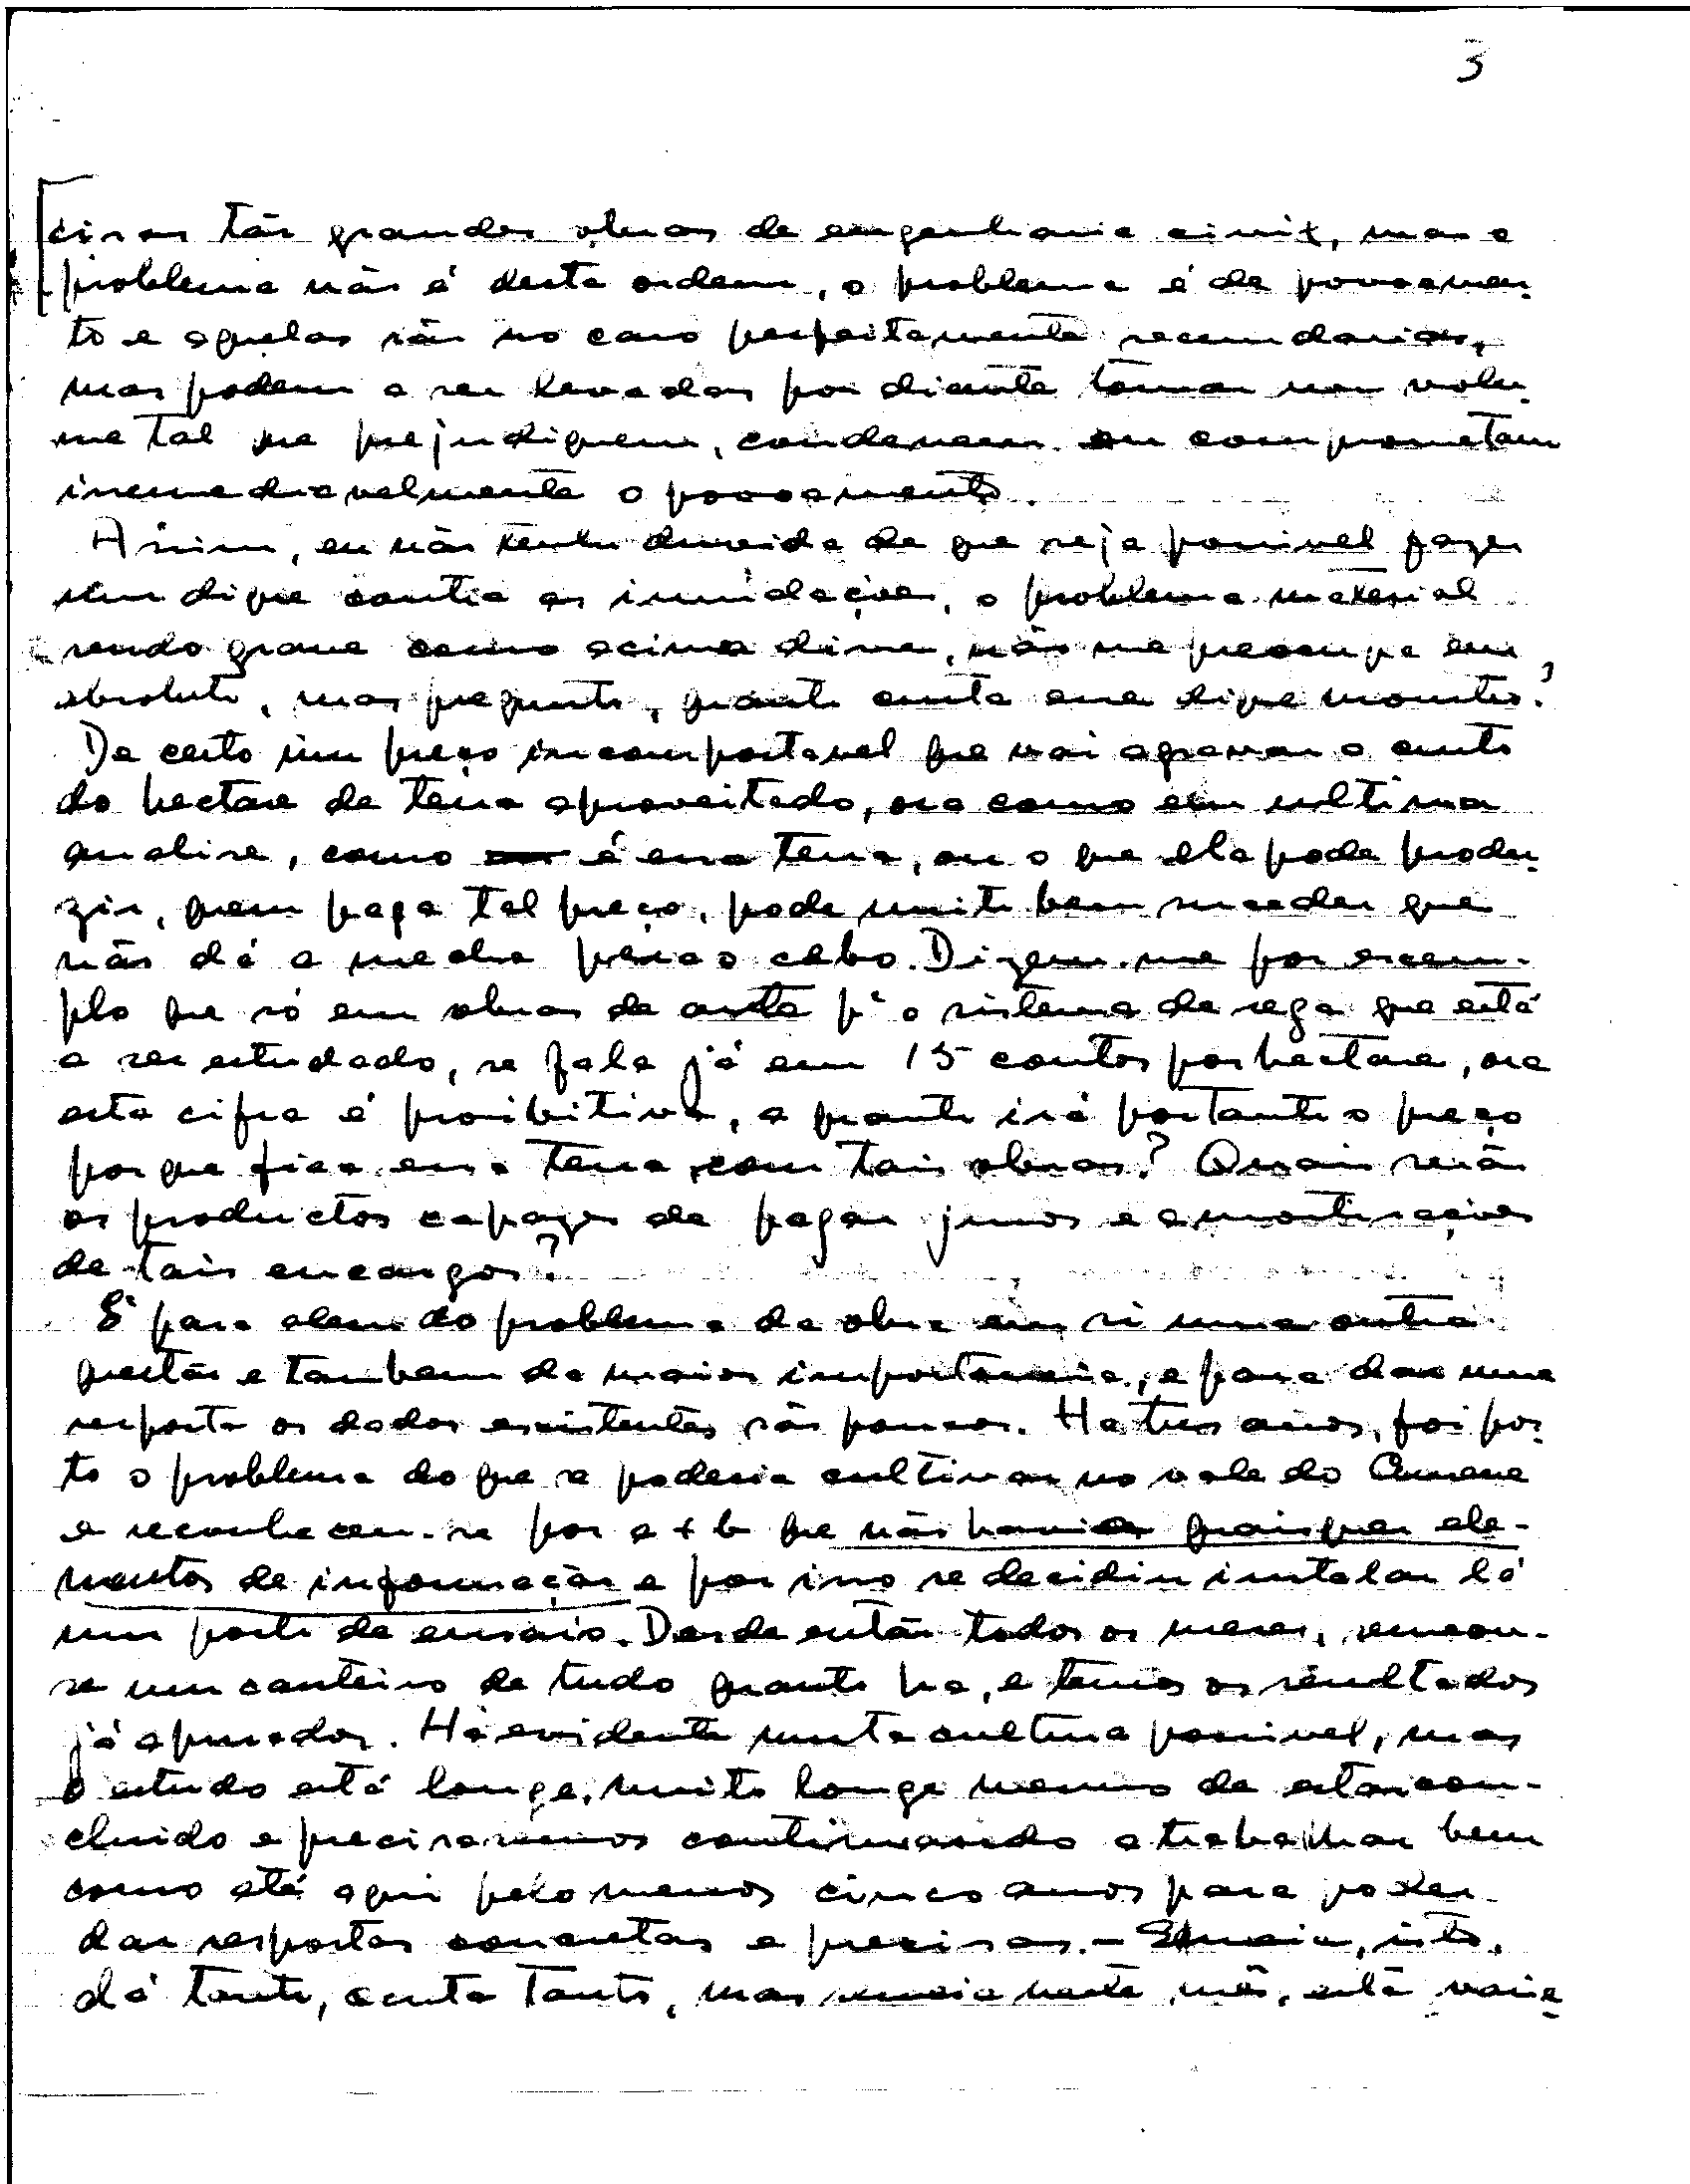 3
cisas tão grandes obras de engenharia civil, mas o
problema não é desta ordem, o problema é de povoamen-
to e aquelas são no caso perfeitamente secundarias,
mas podem a ser levadas por diante tomar um volu-
me tal que prejudiquem, condenem ou comprometam
irremediavelmente o povoamento.
Assim, eu não tenho duvida de que seja possivel fazer
um dique contra as inundações, o problema material
sendo grave como acima disse, não me preocupa em
absoluto, mas pregunto, quanto custa esse dique monstro?
De certo um preço incomportavel que vai agravar o custo
do hectare de terra aproveitado, ora como em ultima
analise, como é essa terra, ou o que ela pode produ-
zir, quem paga tal preço, pode muito bem suceder que
não dê a mecha para o cebo. Dizem-me por exem-
plo que só em obras de arte pª o sistema de rega que está
a ser estudado, se fala já em 15 contos por hectare, ora
esta cifra é proibitiva, a quanto irá portanto o preço
por que fica essa terra com tais obras? Quais serão
os productos capazes de pagar juros e amortisações
de tais encargos?
É para alem do problema da obra em si uma outra
questão e tambem da maior importancia, e para dar uma
resposta os dados existentes são poucos. Ha tres anos, foi pos-
to o problema do que se poderia cultivar no vale do Cunene
e reconheceu-se por a + b que não havia quaisquer ele-
mentos de informação e por isso se decidiu instalar lá
um posto de ensaio. Desde então todos os meses, semeou-
se um canteiro de tudo quanto ha, e temos os resultados
já apurados. Há evidente muita cultura possivel, mas
o estudo está longe, muito longe mesmo de estar con-
cluido e precisaremos continuando a trabalhar bem
como até aqui pelo menos cinco anos para poder
dar respostas concretas e precisas. - Semeia, isto,
dá tanto, custa tanto, mas semeia neste mês, esta varie-